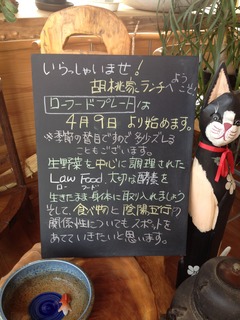 いらっしゃいませ!
胡桃家ランチへ
ようこそ。
ローフードプレートは
4月9日より始めます。
※季節の替目ですので多少ズレる
こともございます。
生野菜を中心に調理された
Law Food、大切な酵素を
ロー フード
生きたまま身体に取り入れましょう
そして、食べ物と陰陽五行の
関係性についてもスポットを
あてていきたいと思います。